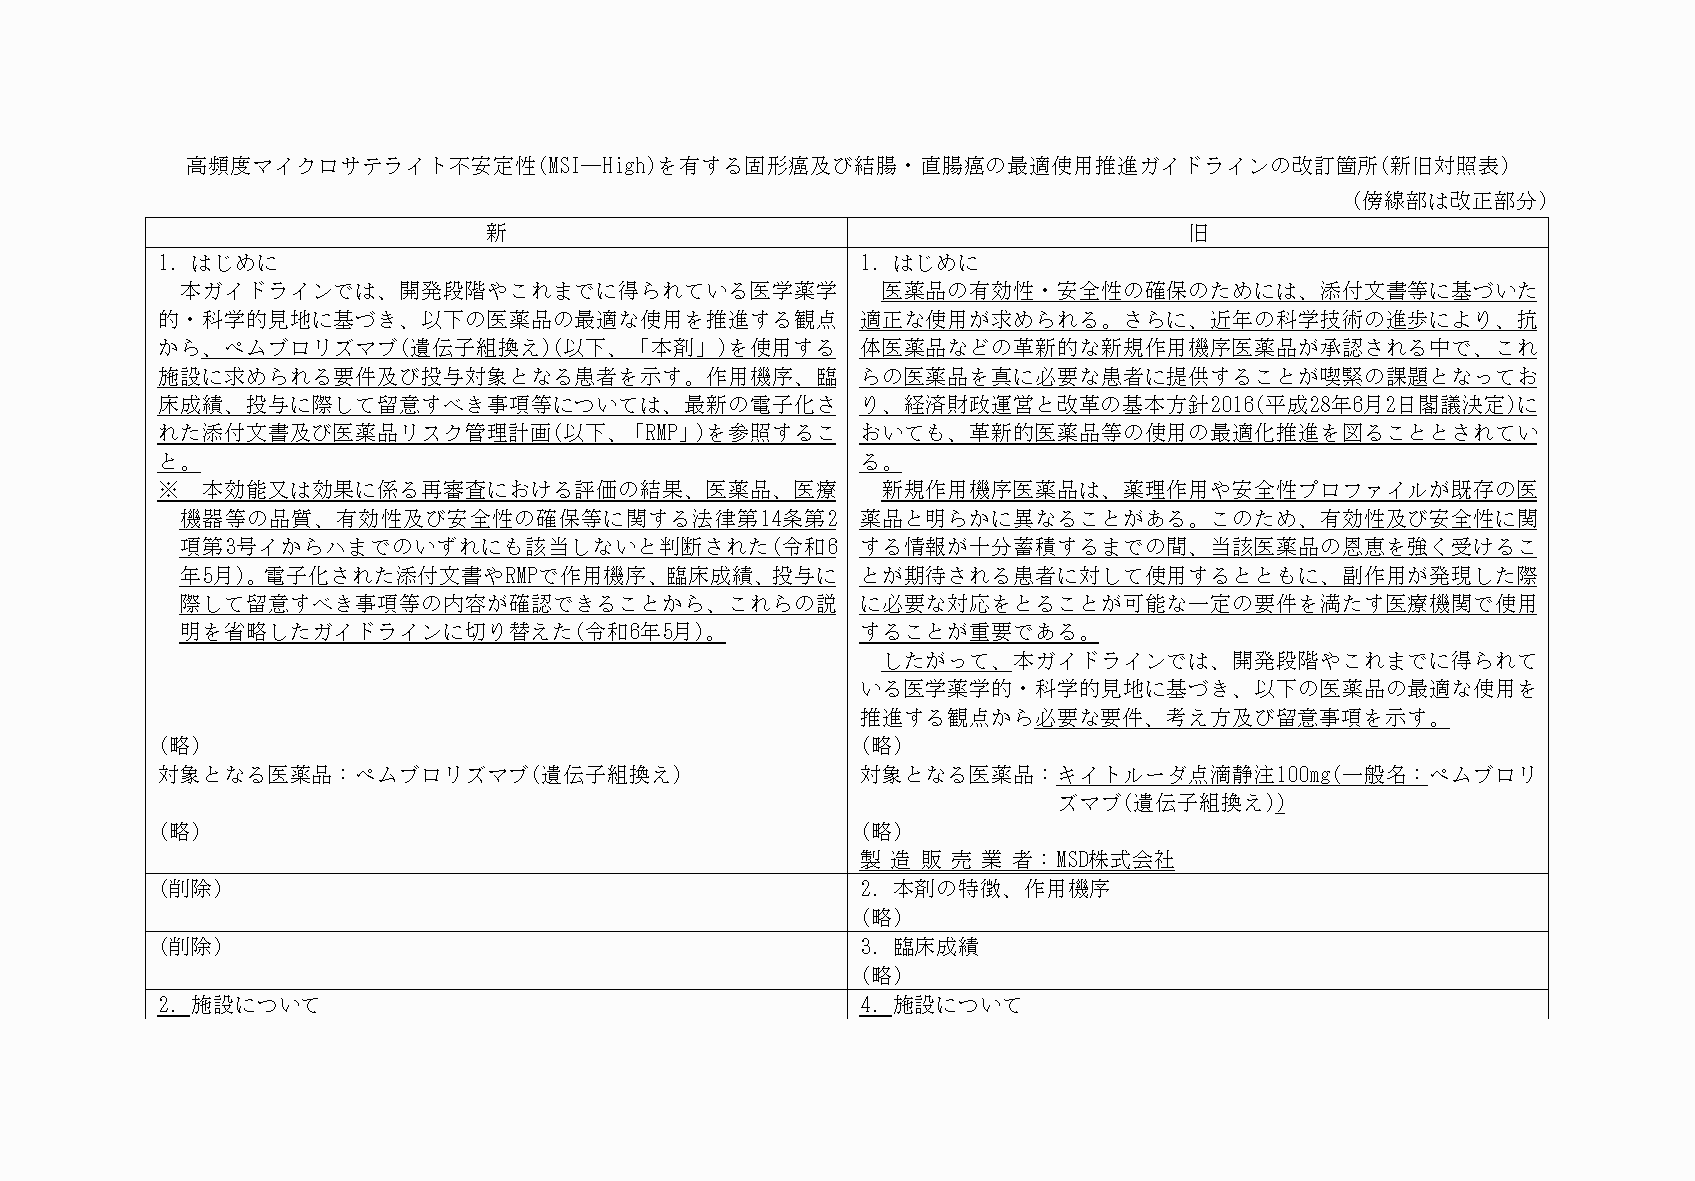 高頻度マイクロサテライト不安定性(MSI―High)を有する固形癌及び結腸・直腸癌の最適使用推進ガイドラインの改訂箇所(新旧対照表)
(傍線部は改正部分)
新
1. はじめに
本ガイドラインでは、開発段階やこれまでに得られている医学薬学
的・科学的見地に基づき、以下の医薬品の最適な使用を推進する観点
から、ペムブロリズマブ(遺伝子組換え)(以下、「本剤」)を使用する
施設に求められる要件及び投与対象となる患者を示す。作用機序、臨
床成績、投与に際して留意すべき事項等については、最新の電子化さ
れた添付文書及び医薬品リスク管理計画(以下、「RMP」)を参照するこ
と。
※　本効能又は効果に係る再審査における評価の結果、医薬品、医療
機器等の品質、有効性及び安全性の確保等に関する法律第14条第2
項第3号イからハまでのいずれにも該当しないと判断された(令和6
年5月)。電子化された添付文書やRMPで作用機序、臨床成績、投与に
際して留意すべき事項等の内容が確認できることから、これらの説
明を省略したガイドラインに切り替えた(令和6年5月)。
(略)
対象となる医薬品：ペムブロリズマブ(遺伝子組換え)
(略)
旧
1. はじめに
医薬品の有効性・安全性の確保のためには、添付文書等に基づいた
適正な使用が求められる。さらに、近年の科学技術の進歩により、抗
体医薬品などの革新的な新規作用機序医薬品が承認される中で、これ
らの医薬品を真に必要な患者に提供することが喫緊の課題となってお
り、経済財政運営と改革の基本方針2016(平成28年6月2日閣議決定)に
おいても、革新的医薬品等の使用の最適化推進を図ることとされてい
る。
新規作用機序医薬品は、薬理作用や安全性プロファイルが既存の医
薬品と明らかに異なることがある。このため、有効性及び安全性に関
する情報が十分蓄積するまでの間、当該医薬品の恩恵を強く受けるこ
とが期待される患者に対して使用するとともに、副作用が発現した際
に必要な対応をとることが可能な一定の要件を満たす医療機関で使用
することが重要である。
したがって、本ガイドラインでは、開発段階やこれまでに得られて
いる医学薬学的・科学的見地に基づき、以下の医薬品の最適な使用を
推進する観点から必要な要件、考え方及び留意事項を示す。
(略)
対象となる医薬品：キイトルーダ点滴静注100mg(一般名：ペムブロリ
ズマブ(遺伝子組換え))
(略)
製 造 販 売 業 者：MSD株式会社
(削除)
2. 本剤の特徴、作用機序
(略)
(削除)
3. 臨床成績
(略)
2. 施設について
4. 施設について